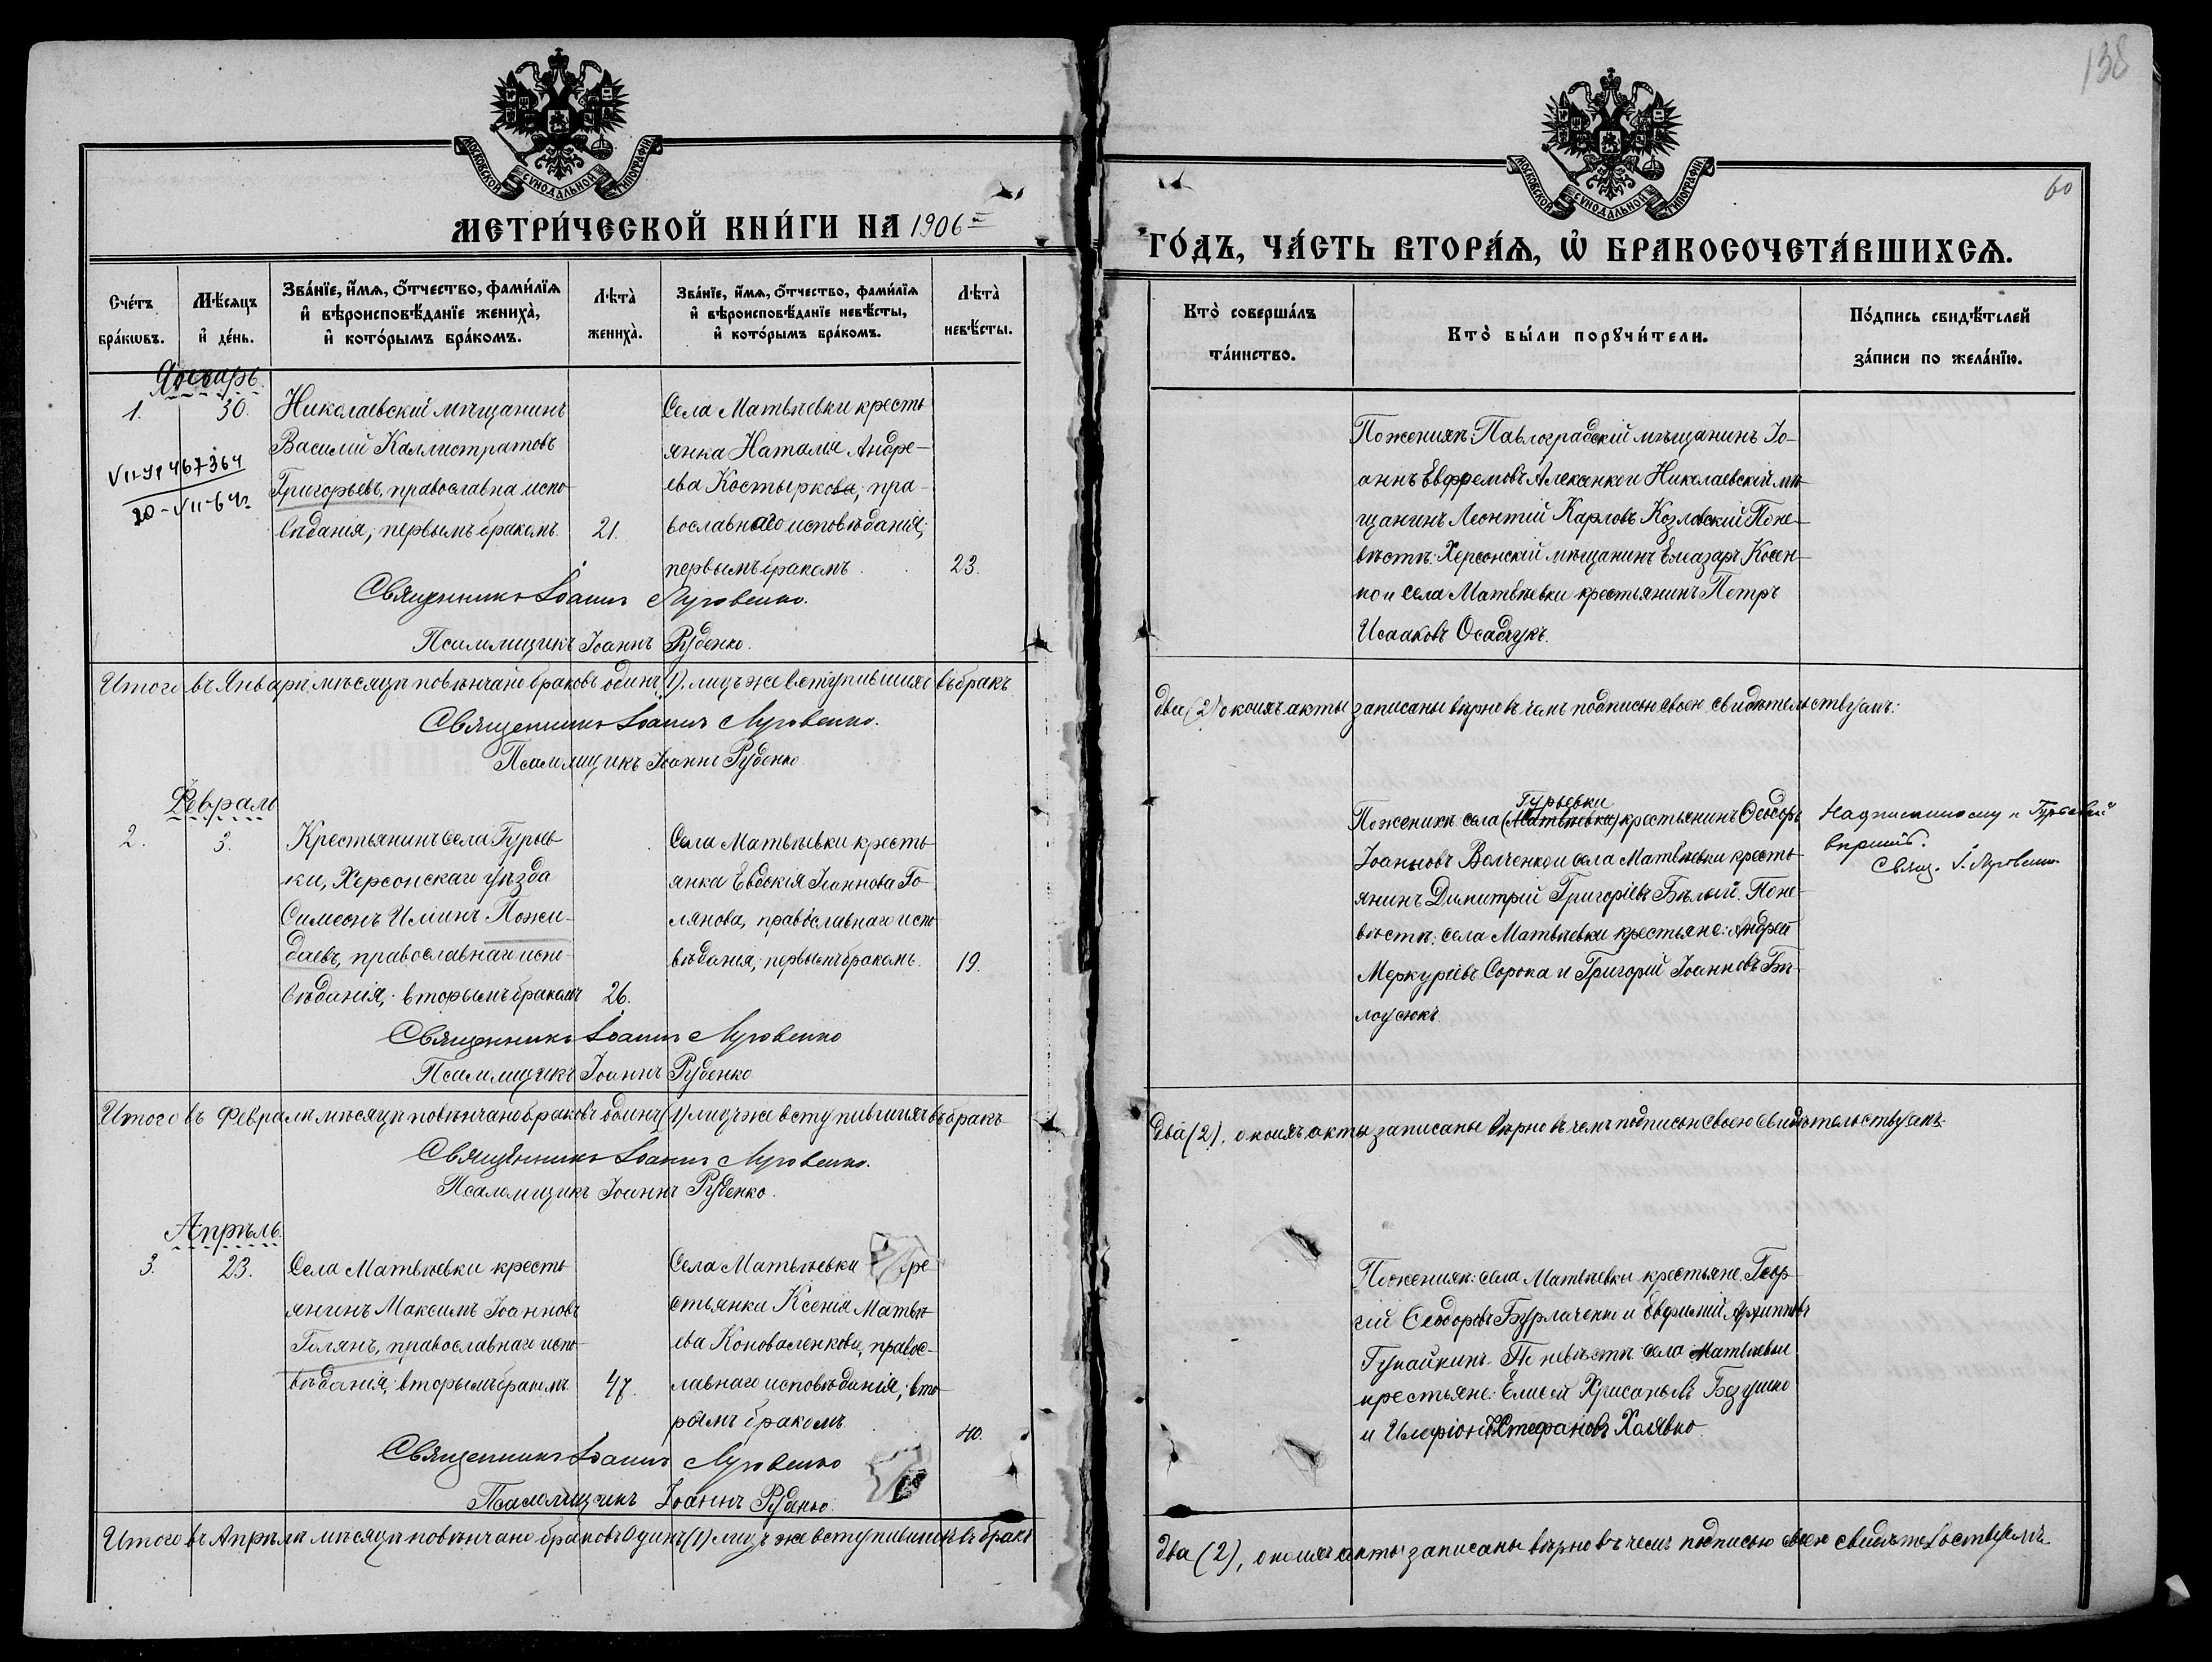 138
60
МОСКОВСКОЙ СѴНОДАЛЬНОЙ ТИПОГРАФІИ
МОСКОВСКОЙ СѴНОДАЛЬНОЙ ТИПОГРАФІИ
МЕТРИ́ЧЕСКОЙ КНИ́ГИ НА 1906 й
ГО́ДЪ, ЧА́СТЬ ВТОРА́Ѧ, Ѽ БРАКОСОЧЕТА́ВШИХСѦ.
Сче́тъ бра́кѡвъ.
Мѣ́сяцъ и҆ де́нь.
Зва́нїе, и҆́мѧ, ѻ҆́тчество, фами́лїѧ и҆ вѣроисповѣ́данїе жениха̀, и҆ кото́рымъ бра́комъ.
Лѣта̀ жениха̀.
Зва́нїе, и҆́мѧ, ѻ҆́тчество, фами́лїѧ и҆ вѣроисповѣ́данїе невѣ́сты, и҆ кото́рымъ бра́комъ.
Лѣта̀ невѣ́сты.
Кто̀ соверша́лъ та́инство.
Кто̀ бы́ли порꙋчи́тели.
По́дпись свидѣ́телей за́писи по жела́нїю.
Январь.
1. 30.
VII-УІ 467364
20-VII-64г
Николаевскій мѣщанинъ
Василій Каллистратовъ
Григорьевъ, православна испо-
вѣданія; первымъ бракомъ. 21.
Села Матвѣевки кресть
янка Наталія Андре-
ева Костыркова; пра-
вославнаго исповѣданія;
первымъ бракомъ. 23.
Священникъ Іоаннъ Луговенко.
Псаломщикъ Іоаннъ Руденко.
По женихѣ: Павлоградскій мѣщанинъ Іо-
аннъ Евфремовъ Алексенко и Николаевскій мѣ-
щанинъ Леонтій Карловъ Козловскій По не-
вѣстѣ: Херсонскій мѣщанинъ Елеазаръ Косен-
ко и села Матвѣевки крестьянинъ Петръ
Исааковъ Осадчукъ.
Итого въ Январѣ мѣсяцѣ повѣнчано браковъ одинъ (1), лицъ же вступившихъ въ бракъ
два (2) о коихъ акты записаны вѣрно въ чемъ подписью своею свидѣтельствуемъ:
Священникъ Іоаннъ Луговенко.
Псаломщикъ Іоаннъ Руденко
Февраль
2. 3.
Крестьянинъ села Гурьев-
ки, Херсонскаго уѣзда
Симеонъ Иліинъ Пожи-
даевъ, православнаго испо-
вѣданія; вторымъ бракомъ 26.
Села Матвѣевки кресть
янка Евдокія Іоаннова Го-
лянова, православнаго испо
вѣданія; первымъ бракомъ. 19.
Священникъ Іоаннъ Луговенко
Псаломщикъ Іоаннъ Руденко
Гурьевки
По женихѣ: села (Матвѣевки) крестьянинъ Ѳеодоръ
Іоанновъ Волченко и села Матвѣевки кресть
янинъ Димитрій Григоріевъ Бѣлый. По не-
вѣстѣ: села Матвѣевки крестьяне: Андрей
Меркуріевъ Сорока и Григорій Іоанновъ Бѣ-
лоусюкъ.
Надписанному „Гурьевки"
вѣрить.
Свящ. І. Луговенко
Итого въ Февралѣ мѣсяцѣ повѣнчано браковъ одинъ (1) лицъ же вступившихъ въ бракъ
два (2), о коихъ акты записаны вѣрно въ чемъ подписью своею свидѣтельствуемъ.
Священникъ Іоаннъ Луговенко.
Псаломщикъ Іоаннъ Руденко.
Апрѣль.
3. 23.
Села Матвѣевки кресть
янинъ Максимъ Іоанновъ
Голянъ, православнаго испо-
вѣданія; вторымъ бракомъ 47.
Села Матвѣевки кре
стьянка Ксенія Матвѣ-
ева Коноваленкова, правос-
лавнаго исповѣданія; вто-
рымъ бракомъ 40.
Священникъ Іоаннъ Луговенко
Псаломщикъ Іоаннъ Руденко.
По женихѣ: села Матвѣевки крестьяне Геор-
гій Ѳеодоровъ Бурлаченко и Евфимій Архиповъ
Гунайкинъ. По невѣстѣ села Матвѣевки
крестьяне: Елисей Хрисанфовъ Бездушко
и Иларіонъ Стефановъ Халявко.
Итого въ Апрѣлѣ мѣсяцѣ повѣнчано браковъ Одинъ (1) лицъ же вступившихъ въ бракъ
два (2), о коихъ акты записаны вѣрно въ чемъ подписью своею свидѣтельствуемъ